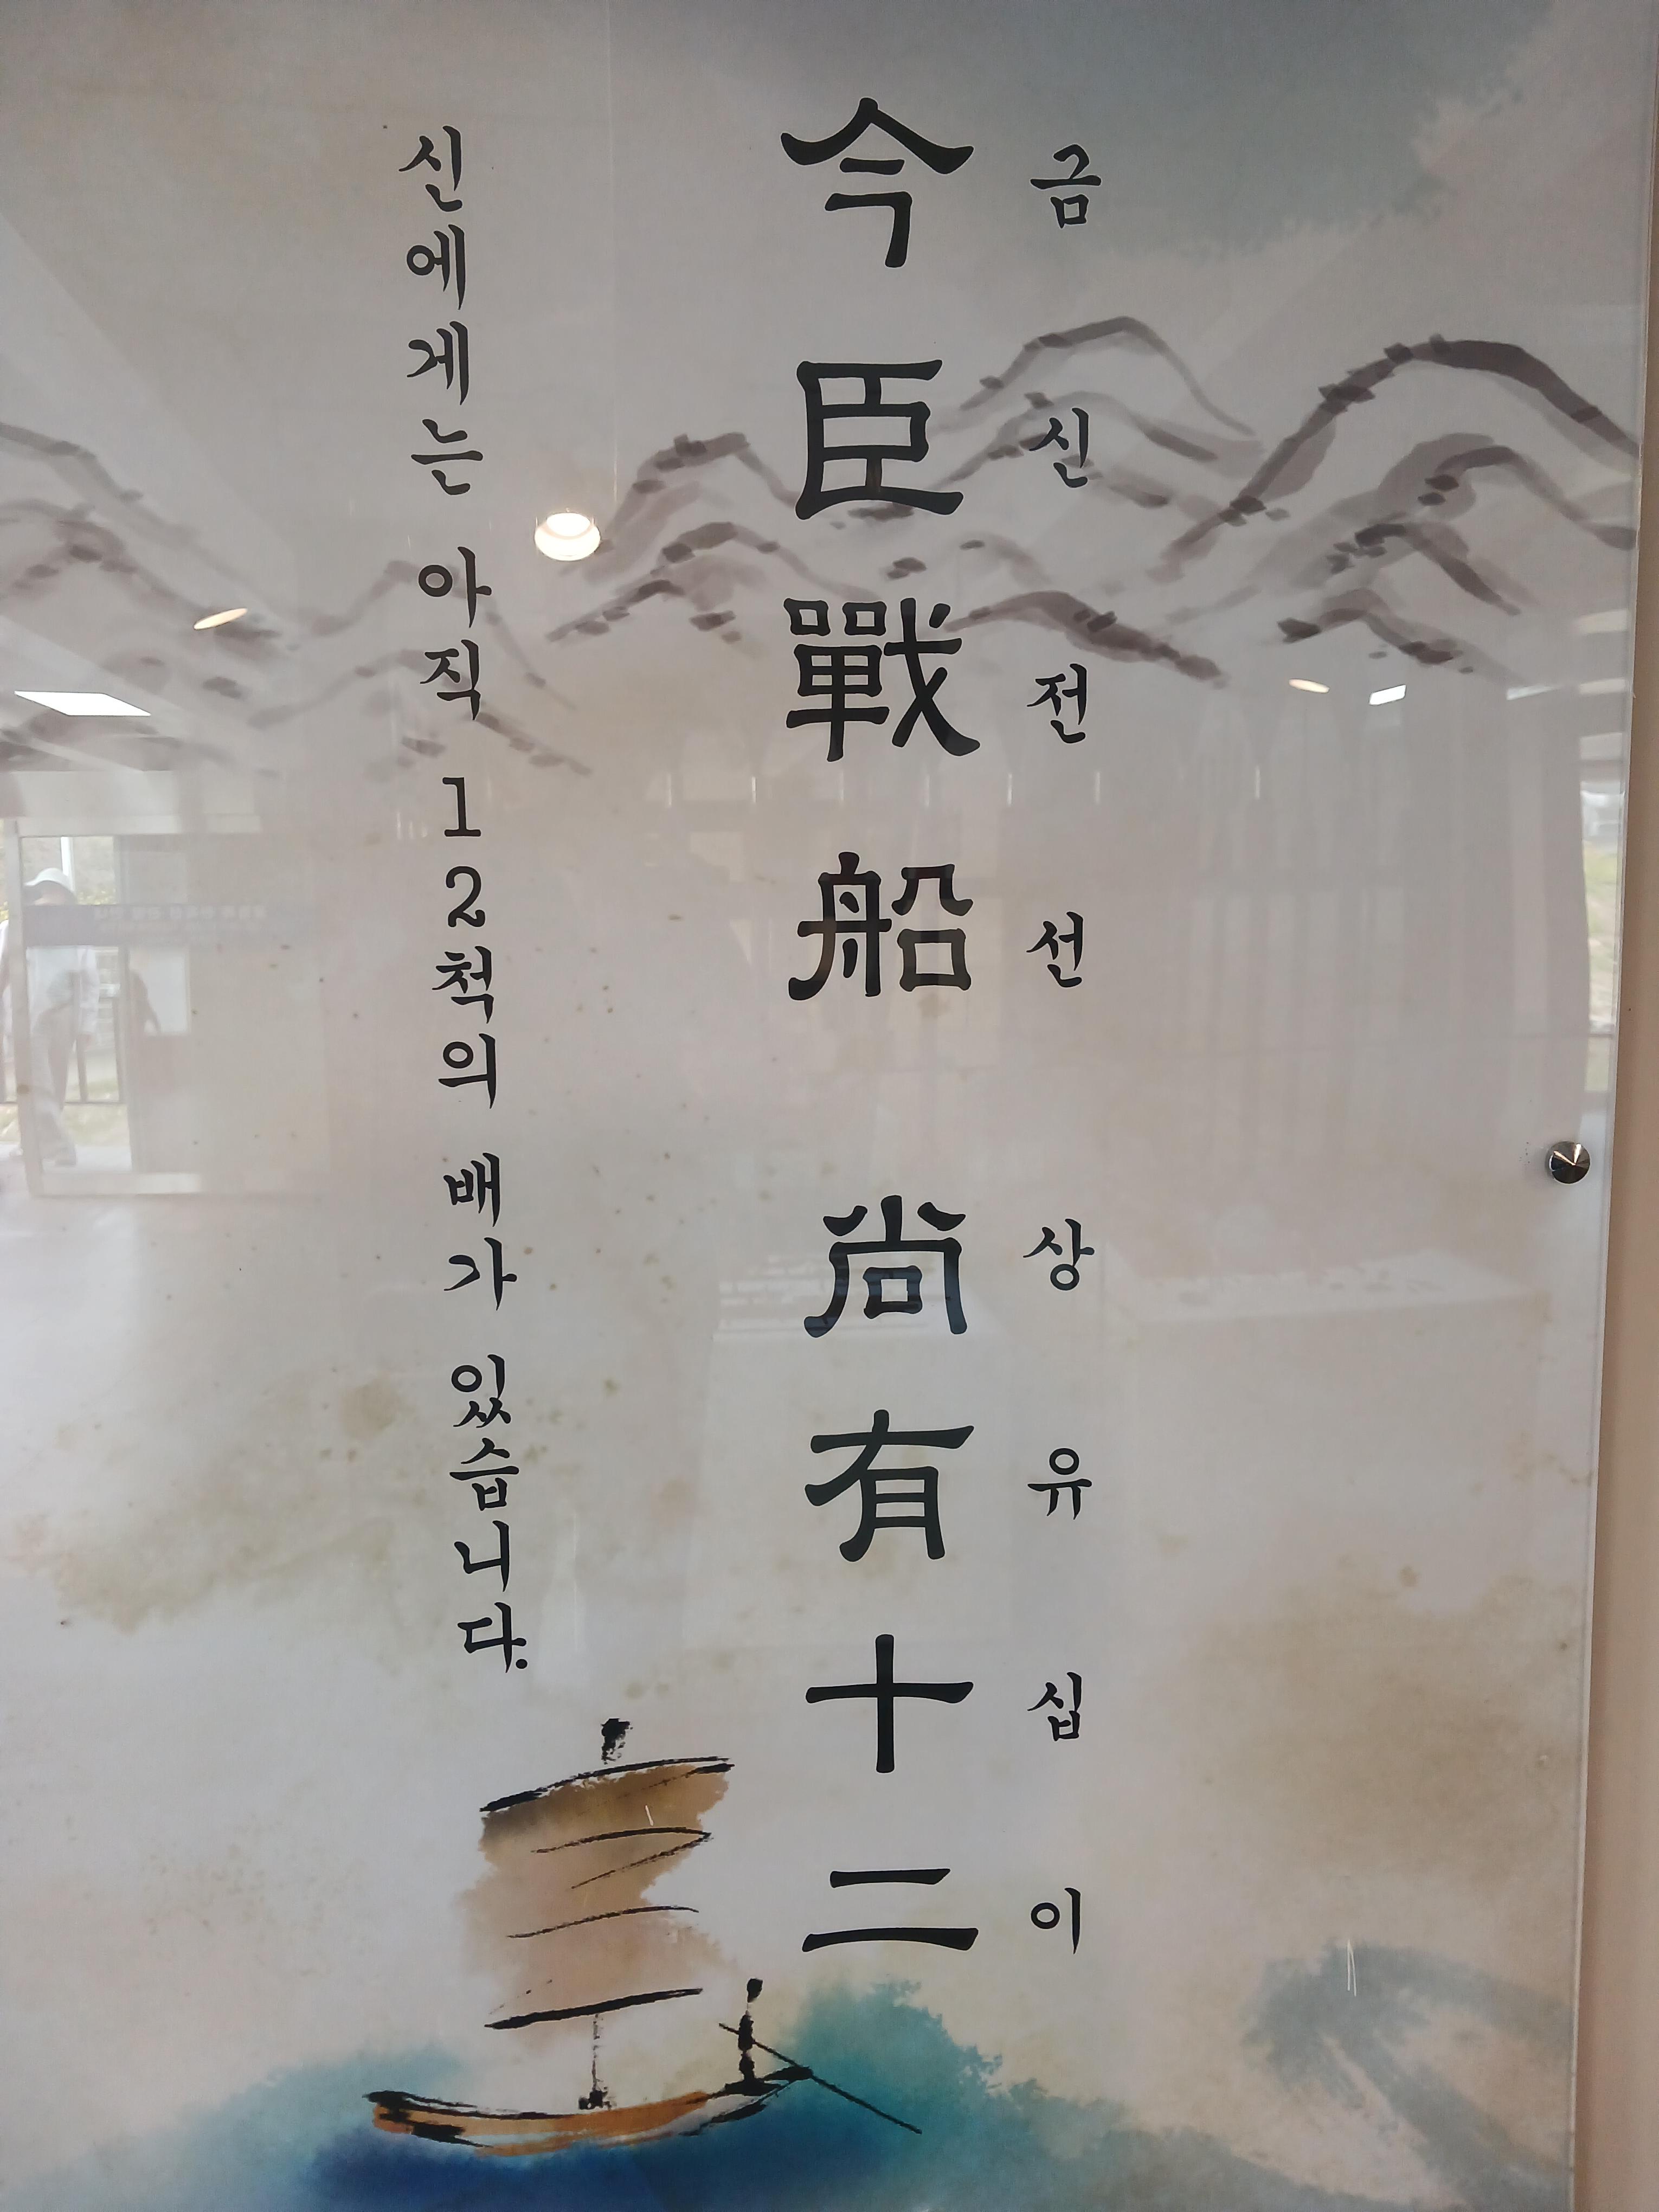 금 신 전 선 상 유 십 이
今臣戰船 尙有十二
신에게는 아직 12척의 배가 있습니다.